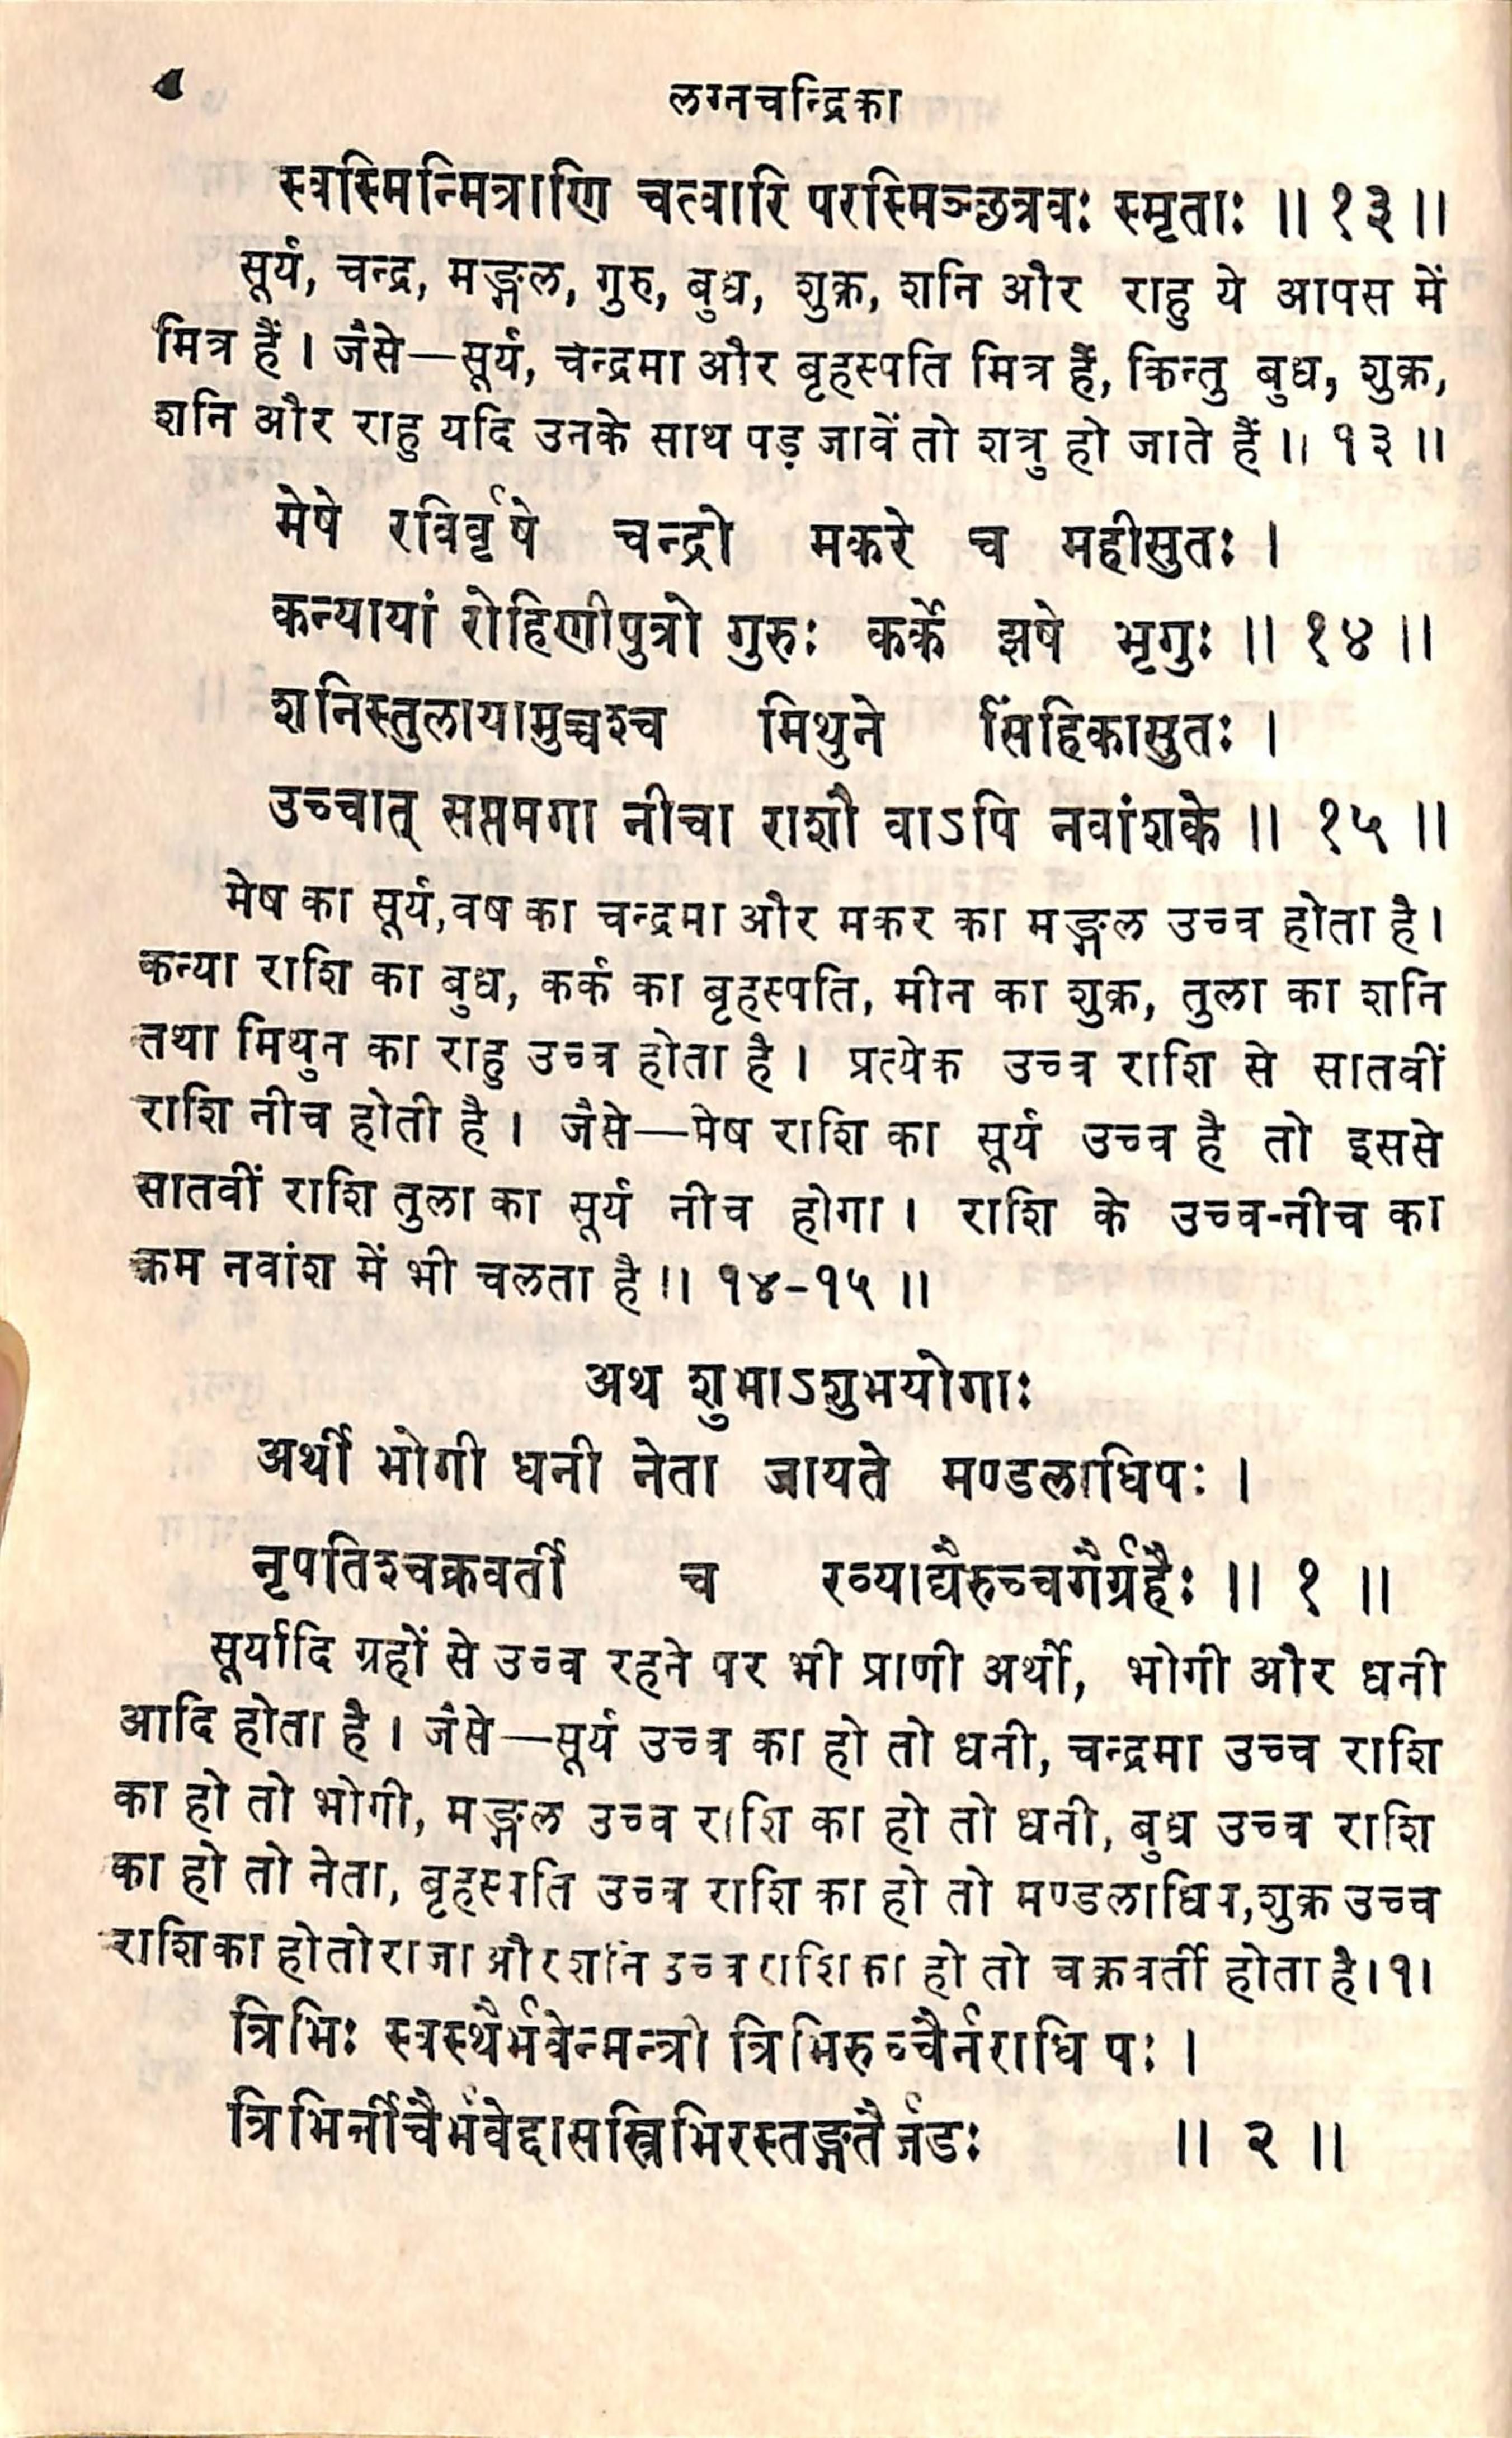 लग्नचन्द्रिका
स्वस्मिन्मित्राणि चत्वारि परस्मिञ्छत्रवः स्मृताः ॥ १३ ॥
सूर्य, चन्द्र, मङ्गल, गुरु, बुध, शुक्र, शनि और राहु ये आपस में
मित्र हैं । जैसे—सूर्य, चन्द्रमा और बृहस्पति मित्र हैं, किन्तु बुध, शुक्र,
शनि और राहु यदि उनके साथ पड़ जावें तो शत्रु हो जाते हैं ॥ १३ ॥
मेषे रविर्वृषे चन्द्रो मकरे च महीसुतः ।
कन्यायां रोहिणीपुत्रो गुरुः कर्के झषे भृगुः ॥ १४ ॥
शनिस्तुलायामुच्चश्च मिथुने सिंहिकासुतः ।
उच्चात् सप्तमगा नीचा राशौ वाऽपि नवांशके ॥ १५ ॥
मेष का सूर्य, वष का चन्द्रमा और मकर का मङ्गल उच्च होता है।
कन्या राशि का बुध, कर्क का बृहस्पति, मीन का शुक्र, तुला का शनि
तथा मिथुन का राहु उच्च होता है । प्रत्येक उच्च राशि से सातवीं
राशि नीच होती है । जैसे—मेष राशि का सूर्य उच्च है तो इससे
सातवीं राशि तुला का सूर्य नीच होगा । राशि के उच्च-नीच का
क्रम नवांश में भी चलता है ॥ १४-१५ ॥
अथ शुभाऽशुभयोगाः
अर्थी भोगी धनी नेता जायते मण्डलाधिपः ।
नृपतिश्चक्रवर्ती च रव्याद्यैरुच्चगैर्ग्रहैः ॥ १ ॥
सूर्यादि ग्रहों से उच्च रहने पर भी प्राणी अर्थी, भोगी और धनी
आदि होता है । जैसे—सूर्य उच्च का हो तो धनी, चन्द्रमा उच्च राशि
का हो तो भोगी, मङ्गल उच्च राशि का हो तो धनी, बुध उच्च राशि
का हो तो नेता, बृहस्पति उच्च राशि का हो तो मण्डलाधिप, शुक्र उच्च
राशि का हो तो राजा और शनि उच्च राशि का हो तो चक्रवर्ती होता है। १।
त्रिभिः स्वस्थैर्भवेन्मन्त्री त्रिभिरुच्चैर्नराधिपः ।
त्रिभिर्नीचैर्भवेद्दासस्त्रिभिरस्तङ्गतैर्जडः ॥ २ ॥